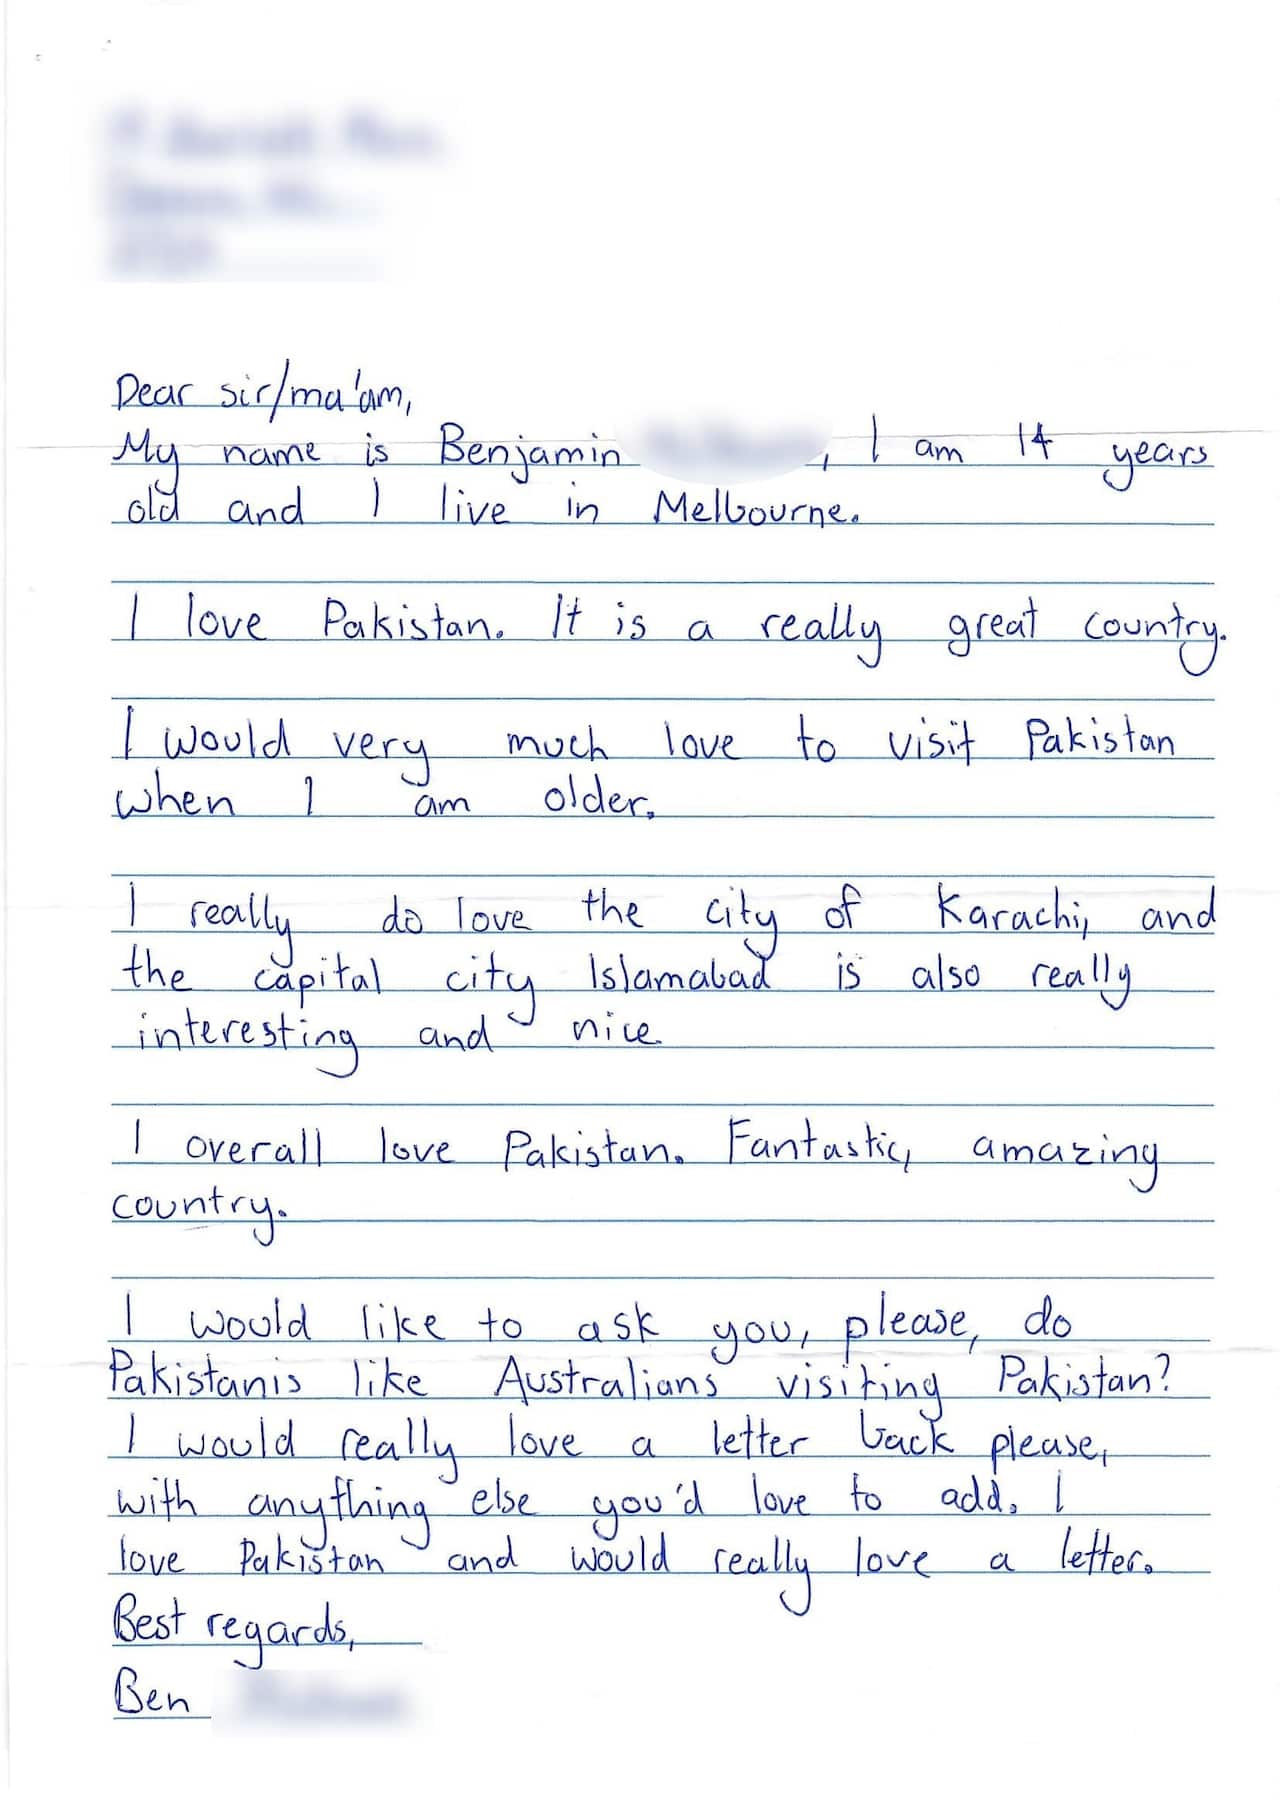 Dear sir/ma'am,
My name is Benjamin , I am 14 years
old and I live in Melbourne.
I love Pakistan. It is a really great country.
I would very much love to visit Pakistan
when I am older.
I really do love the city of Karachi, and
the capital city Islamabad is also really
interesting and nice.
I overall love Pakistan. Fantastic, amazing
country.
I would like to ask you, please, do
Pakistanis like Australians visiting Pakistan?
I would really love a letter back please,
with anything else you'd love to add. I
love Pakistan and would really love a letter.
Best regards,
Ben